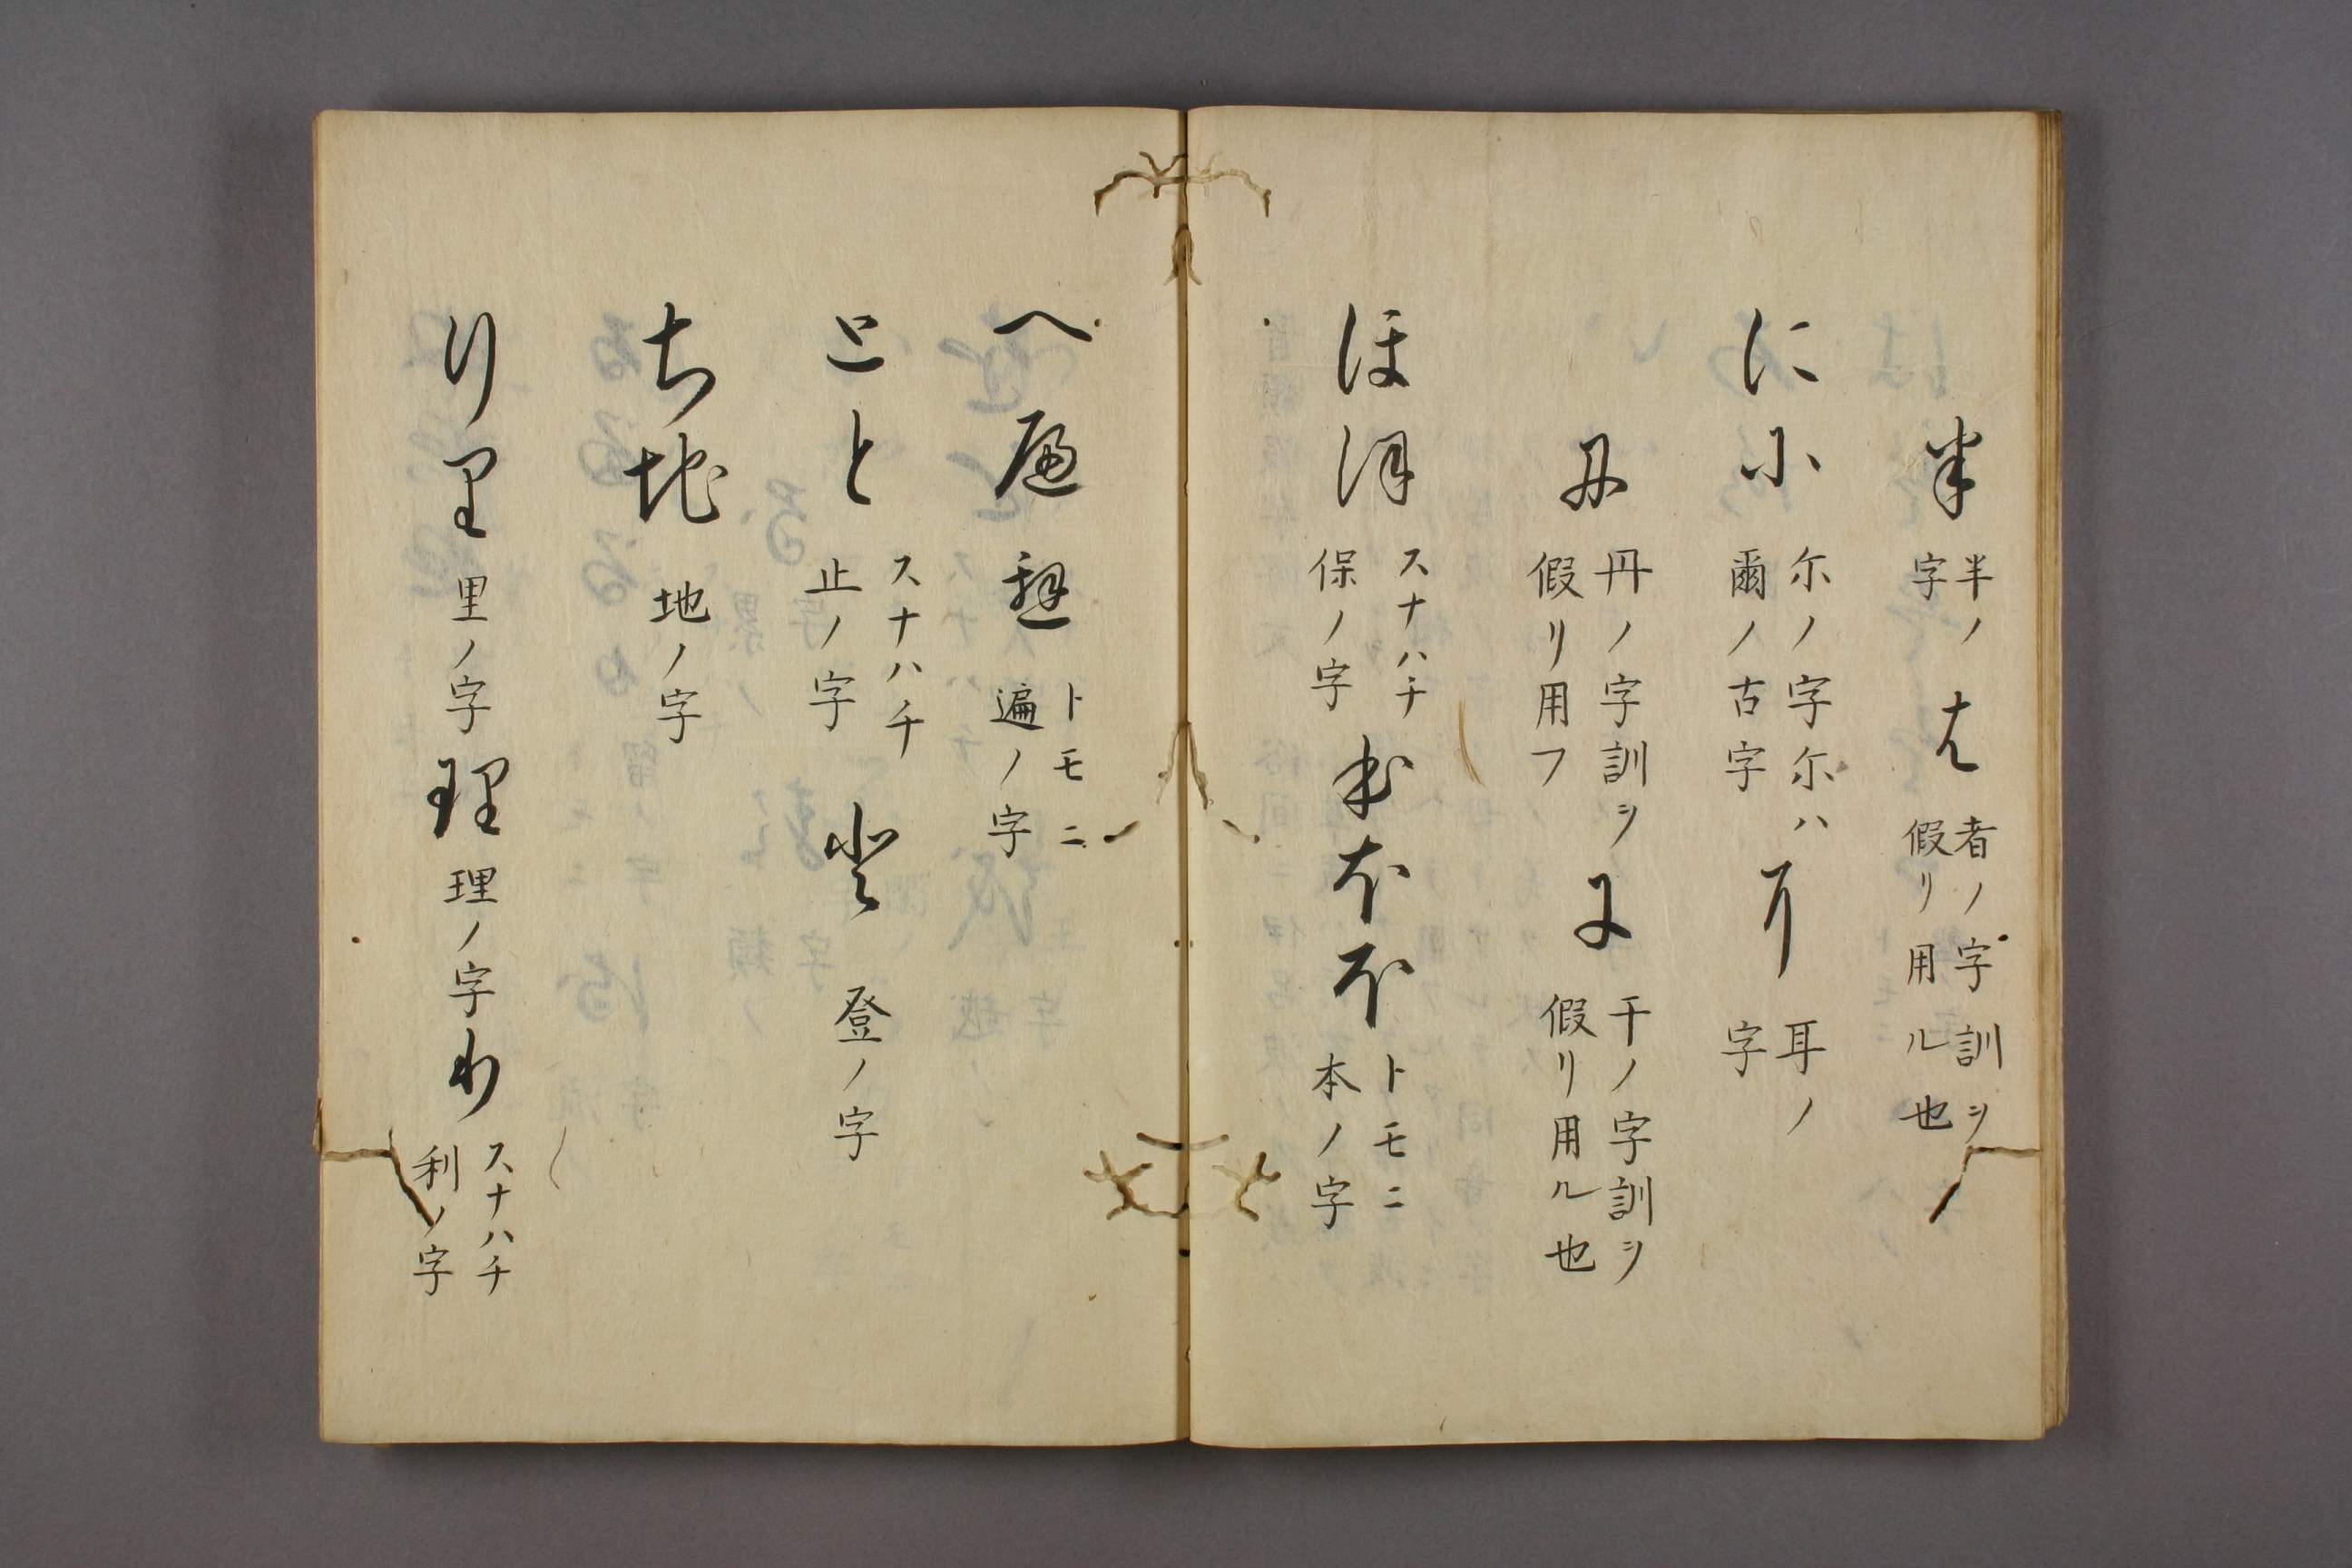 半 半ノ字 者 者ノ字訓ヲ假リ用ル也
に 尓 尓ノ字尓ハ爾ノ古字 耳 耳ノ字
丹 丹ノ字訓ヲ假リ用フ 干 干ノ字訓ヲ假リ用ル也
ほ 保 スナハチ保ノ字 本 本 本 トモニ本ノ字
へ 遍 遍 トモニ遍ノ字
と と スナハチ止ノ字 登 登ノ字
ち 地 地ノ字
り 里 里ノ字 理 理ノ字 利 スナハチ利ノ字